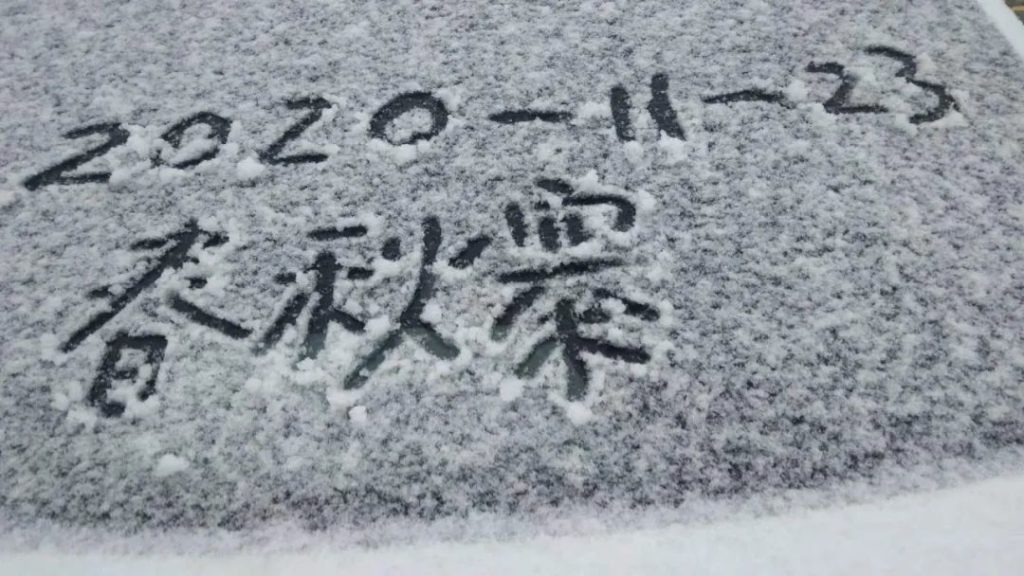 2020-11-23
春秋